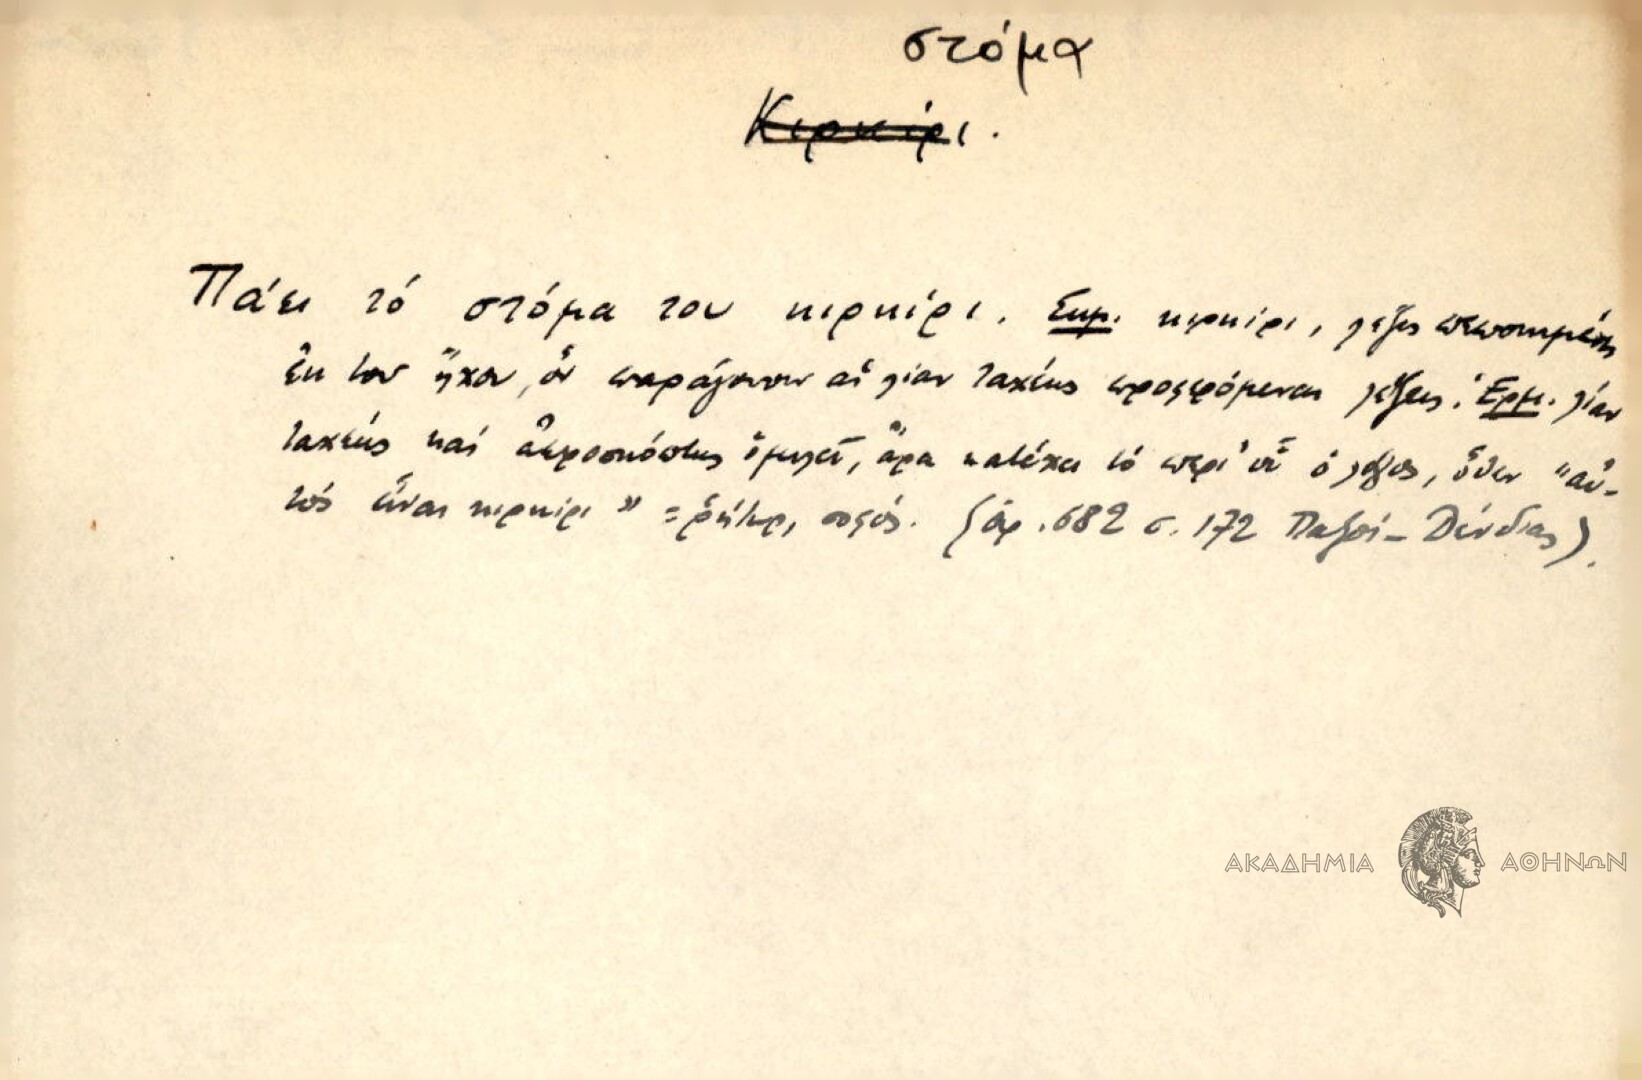 στόμα
Κιρκίρι.
Πάει τό στόμα του κιρκίρι. Σημ. κιρκίρι, λέξις πεποιημένη
ἐκ του ἤχου, ὅν παράγουσιν αἱ λίαν ταχέως προφερόμεναι λέξεις. Ἑρμ. λίαν
ταχέως καί ἀπροσκόπτως ὁμιλεῖ, ἄρα κατέχει τό περί οὗ ὁ λόγος, ὅθεν "αὐ-
τός εἶναι κιρκίρι" = ῥήτωρ, σοφός. (ἀρ. 682 σ. 172 Παξοί -
ΑΚΑΔΗΜΙΑ ΑΘΗΝΩΝ